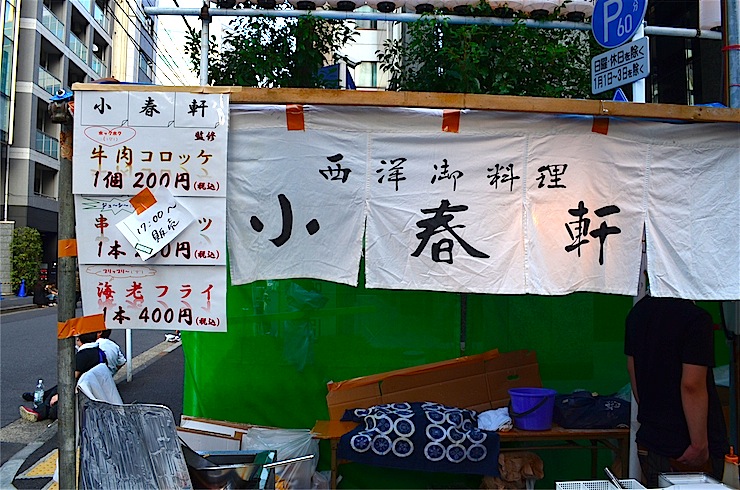 小春軒
監修
ホックホク
牛肉コロッケ
1個 200円(税込)
ジューシー
串 ツ
1本 00円(税込)
17:00〜
販売
プリップリー
海老フライ
1本 400円(税込)
西洋御料理
小春軒
P 60分
日曜・休日を除く
1月1日〜3日を除く